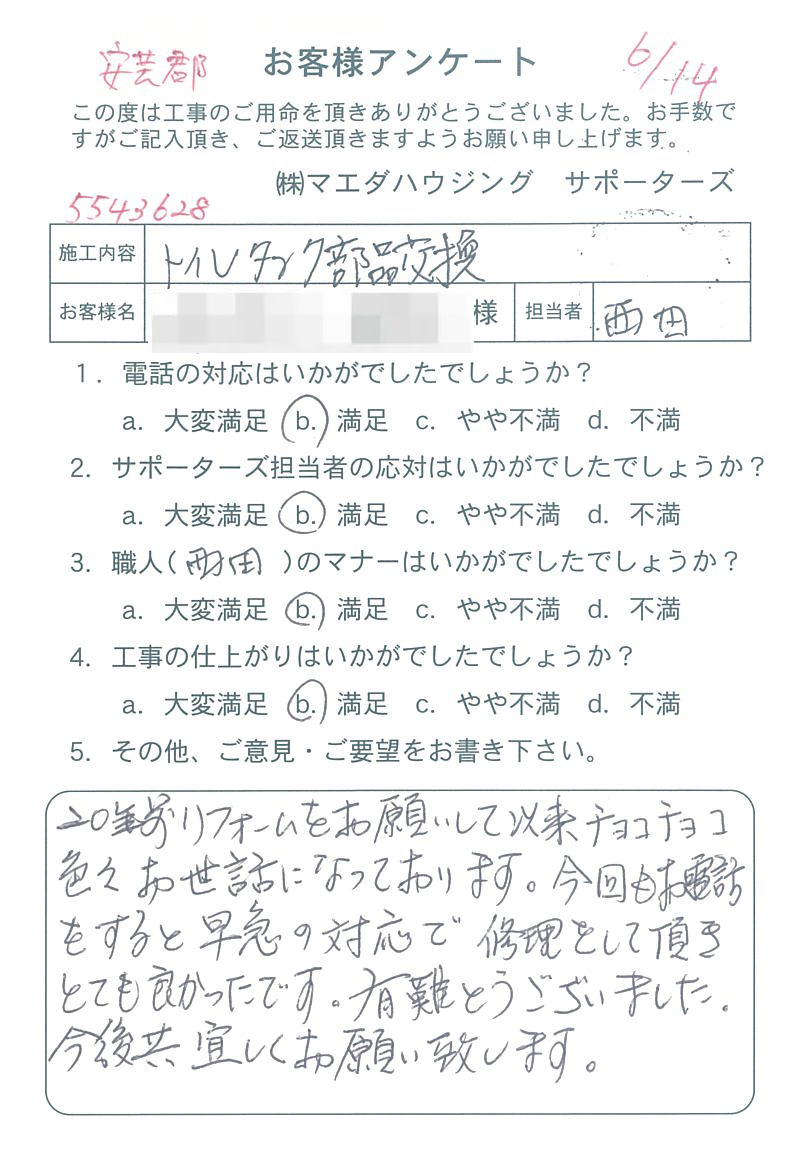 安芸郡 お客様アンケート 6/14
この度は工事のご用命を頂きありがとうございました。お手数で
すがご記入頂き、ご返送頂きますようお願い申し上げます。
㈱マエダハウジング サポーターズ
5543628
施工内容 トイレタンク部品交換
お客様名 様 担当者 西田
1. 電話の対応はいかがでしたでしょうか？
a. 大変満足 b. 満足 c. やや不満 d. 不満
2. サポーターズ担当者の応対はいかがでしたでしょうか？
a. 大変満足 b. 満足 c. やや不満 d. 不満
3. 職人(西田)のマナーはいかがでしたでしょうか？
a. 大変満足 b. 満足 c. やや不満 d. 不満
4. 工事の仕上がりはいかがでしたでしょうか？
a. 大変満足 b. 満足 c. やや不満 d. 不満
5. その他、ご意見・ご要望をお書き下さい。
20年前リフォームをお願いして以来チョコチョコ
色々お世話になっております。今回もお電話
をすると早急の対応で修理をして頂き
とても良かったです。有難とうございました。
今後共宜しくお願い致します。